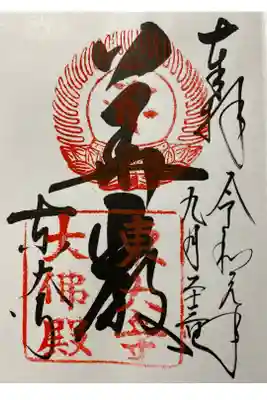 奉拝
令和元年
九月
華嚴
東大寺
東大寺
大佛殿